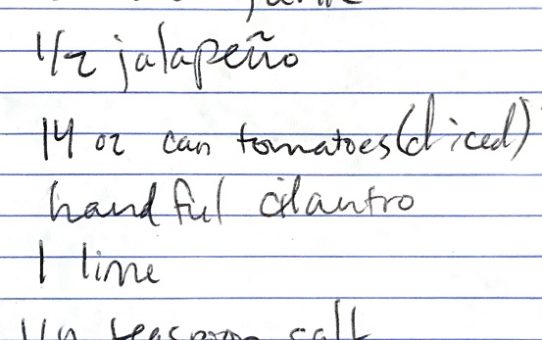 1/2 jalapeño
14 oz can tomatoes (diced)
handful cilantro
1 lime
teaspoon salt